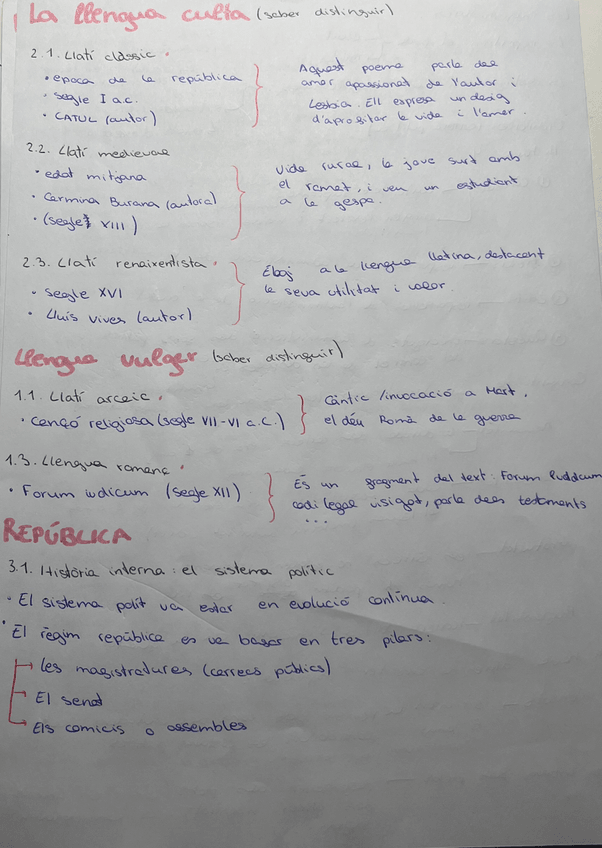 La llengua culta (saber distinguir)
2.1. Llatí clàssic.
• epoca de la república
• segle I a.c.
• CATUL (autor)
Aquest poema parla del
amor apassionat de l'autor i
Lesbia. Ell expresa un desig
d'aprofitar la vida i l'amor.
2.2. Llatí medieval
• edat mitjana
• Carmina Burana (autora)
• (segle XIII)
Vida rural, la jove surt amb
el ramat, i veu un estudiant
a la gespa.
2.3. Llatí renaixentista.
• Segle XVI
• Lluís Vives (autor)
Elogi a la llengua llatina, destacant
la seva utilitat i valor.
Llengua vulgar (saber distinguir)
1.1. Llatí arcaic.
• Cançó religiosa (segle VII-VI a.C.)
Càntic/invocació a Mart,
el déu Romà de la guerra
1.3. Llengua romanç.
• Forum iudicum (segle XII)
És un fragment del text: Forum Iudicum
codi legal visigot, parla dels testaments
...
REPÚBLICA
3.1. Història interna: el sistema polític
• El sistema polít va estar en evolució contínua.
• El règim república es va basar en tres pilars:
les magistradures (càrrecs públics)
El senat
Els comicis o assembles